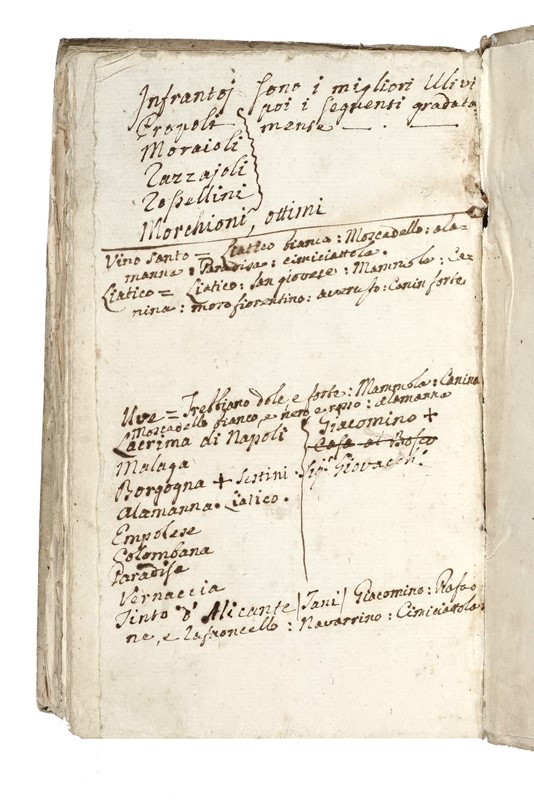 Infrantoj
Sono i migliori Ulivi
Propoli
poi i seguenti gradata
mense
Moraioli
Razzajoli
Rossellini
Morchioni, ottimi
Vino santo — Liatico bianca: Moscadello: ala-
manna: Paradisa: cimiciattola.
Liatico = Liatico: san giovese: Mammola: Ca-
nina: moro fiorentino: averusto: Canin forte
Uve = Trebbiano dole e forte: Mammola: Canina
Moscadello bianco, e nero e rosso: alamanna
Lacrima di Napoli
Giacomino +
Malaga
Casa al Bosco
Borgogna + Sestini
Sig.r Giovacch.
alamanna. Liatico.
Empolese
Colombana
Paradisa
Vernaccia
Tinto d'Alicante | Tani | Giacomino: Rafao-
ne, e Zafroncello: Navarrino: Cimiciattola